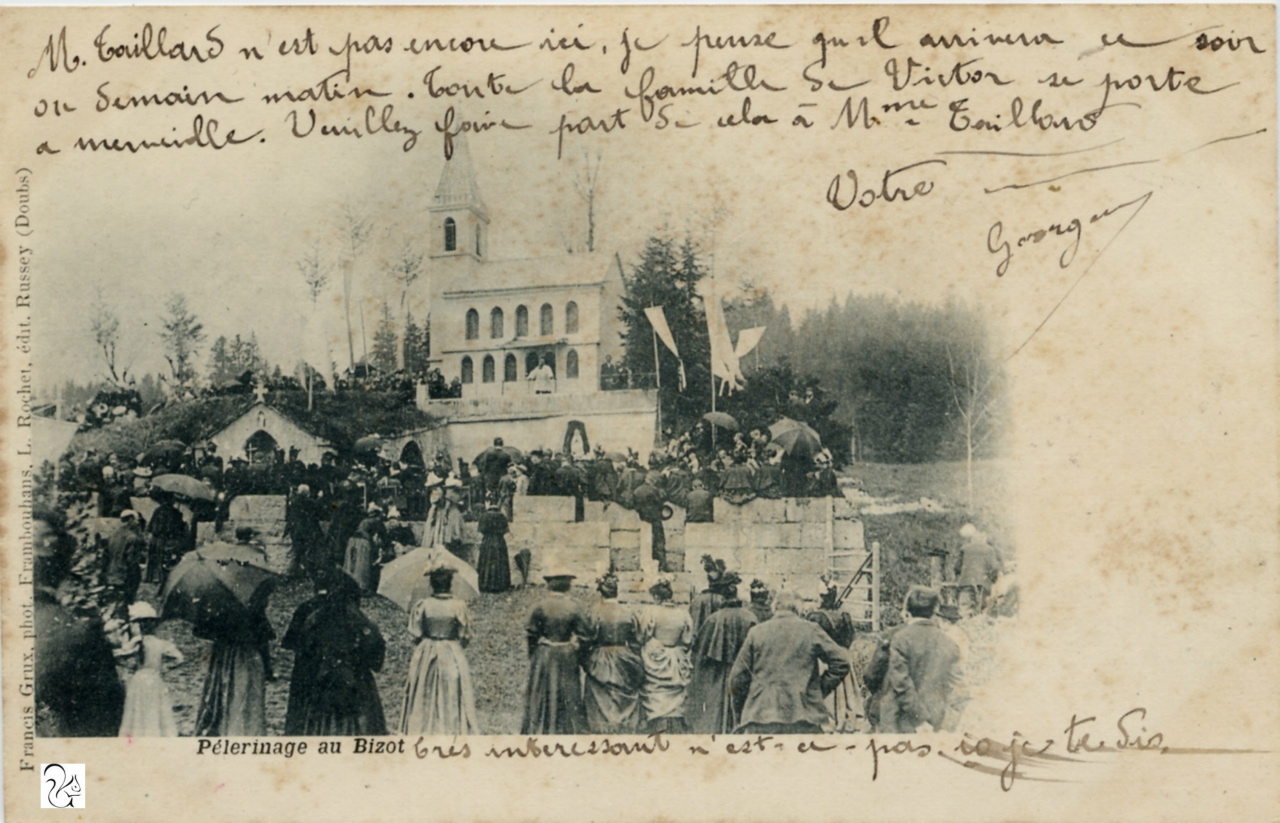 M. Taillard n'est pas encore ici, je pense qu'il arrivera ce soir
ou demain matin. Toute la famille de Victor se porte
a merveille. Veuillez faire part de cela à Mme Taillard
Votre
Georges
Francis Grux, phot. Frambouhans, L. Rochet, édit. Russey (Doubs)
Pélerinage au Bizot très interessant n'est-ce-pas. je te dis